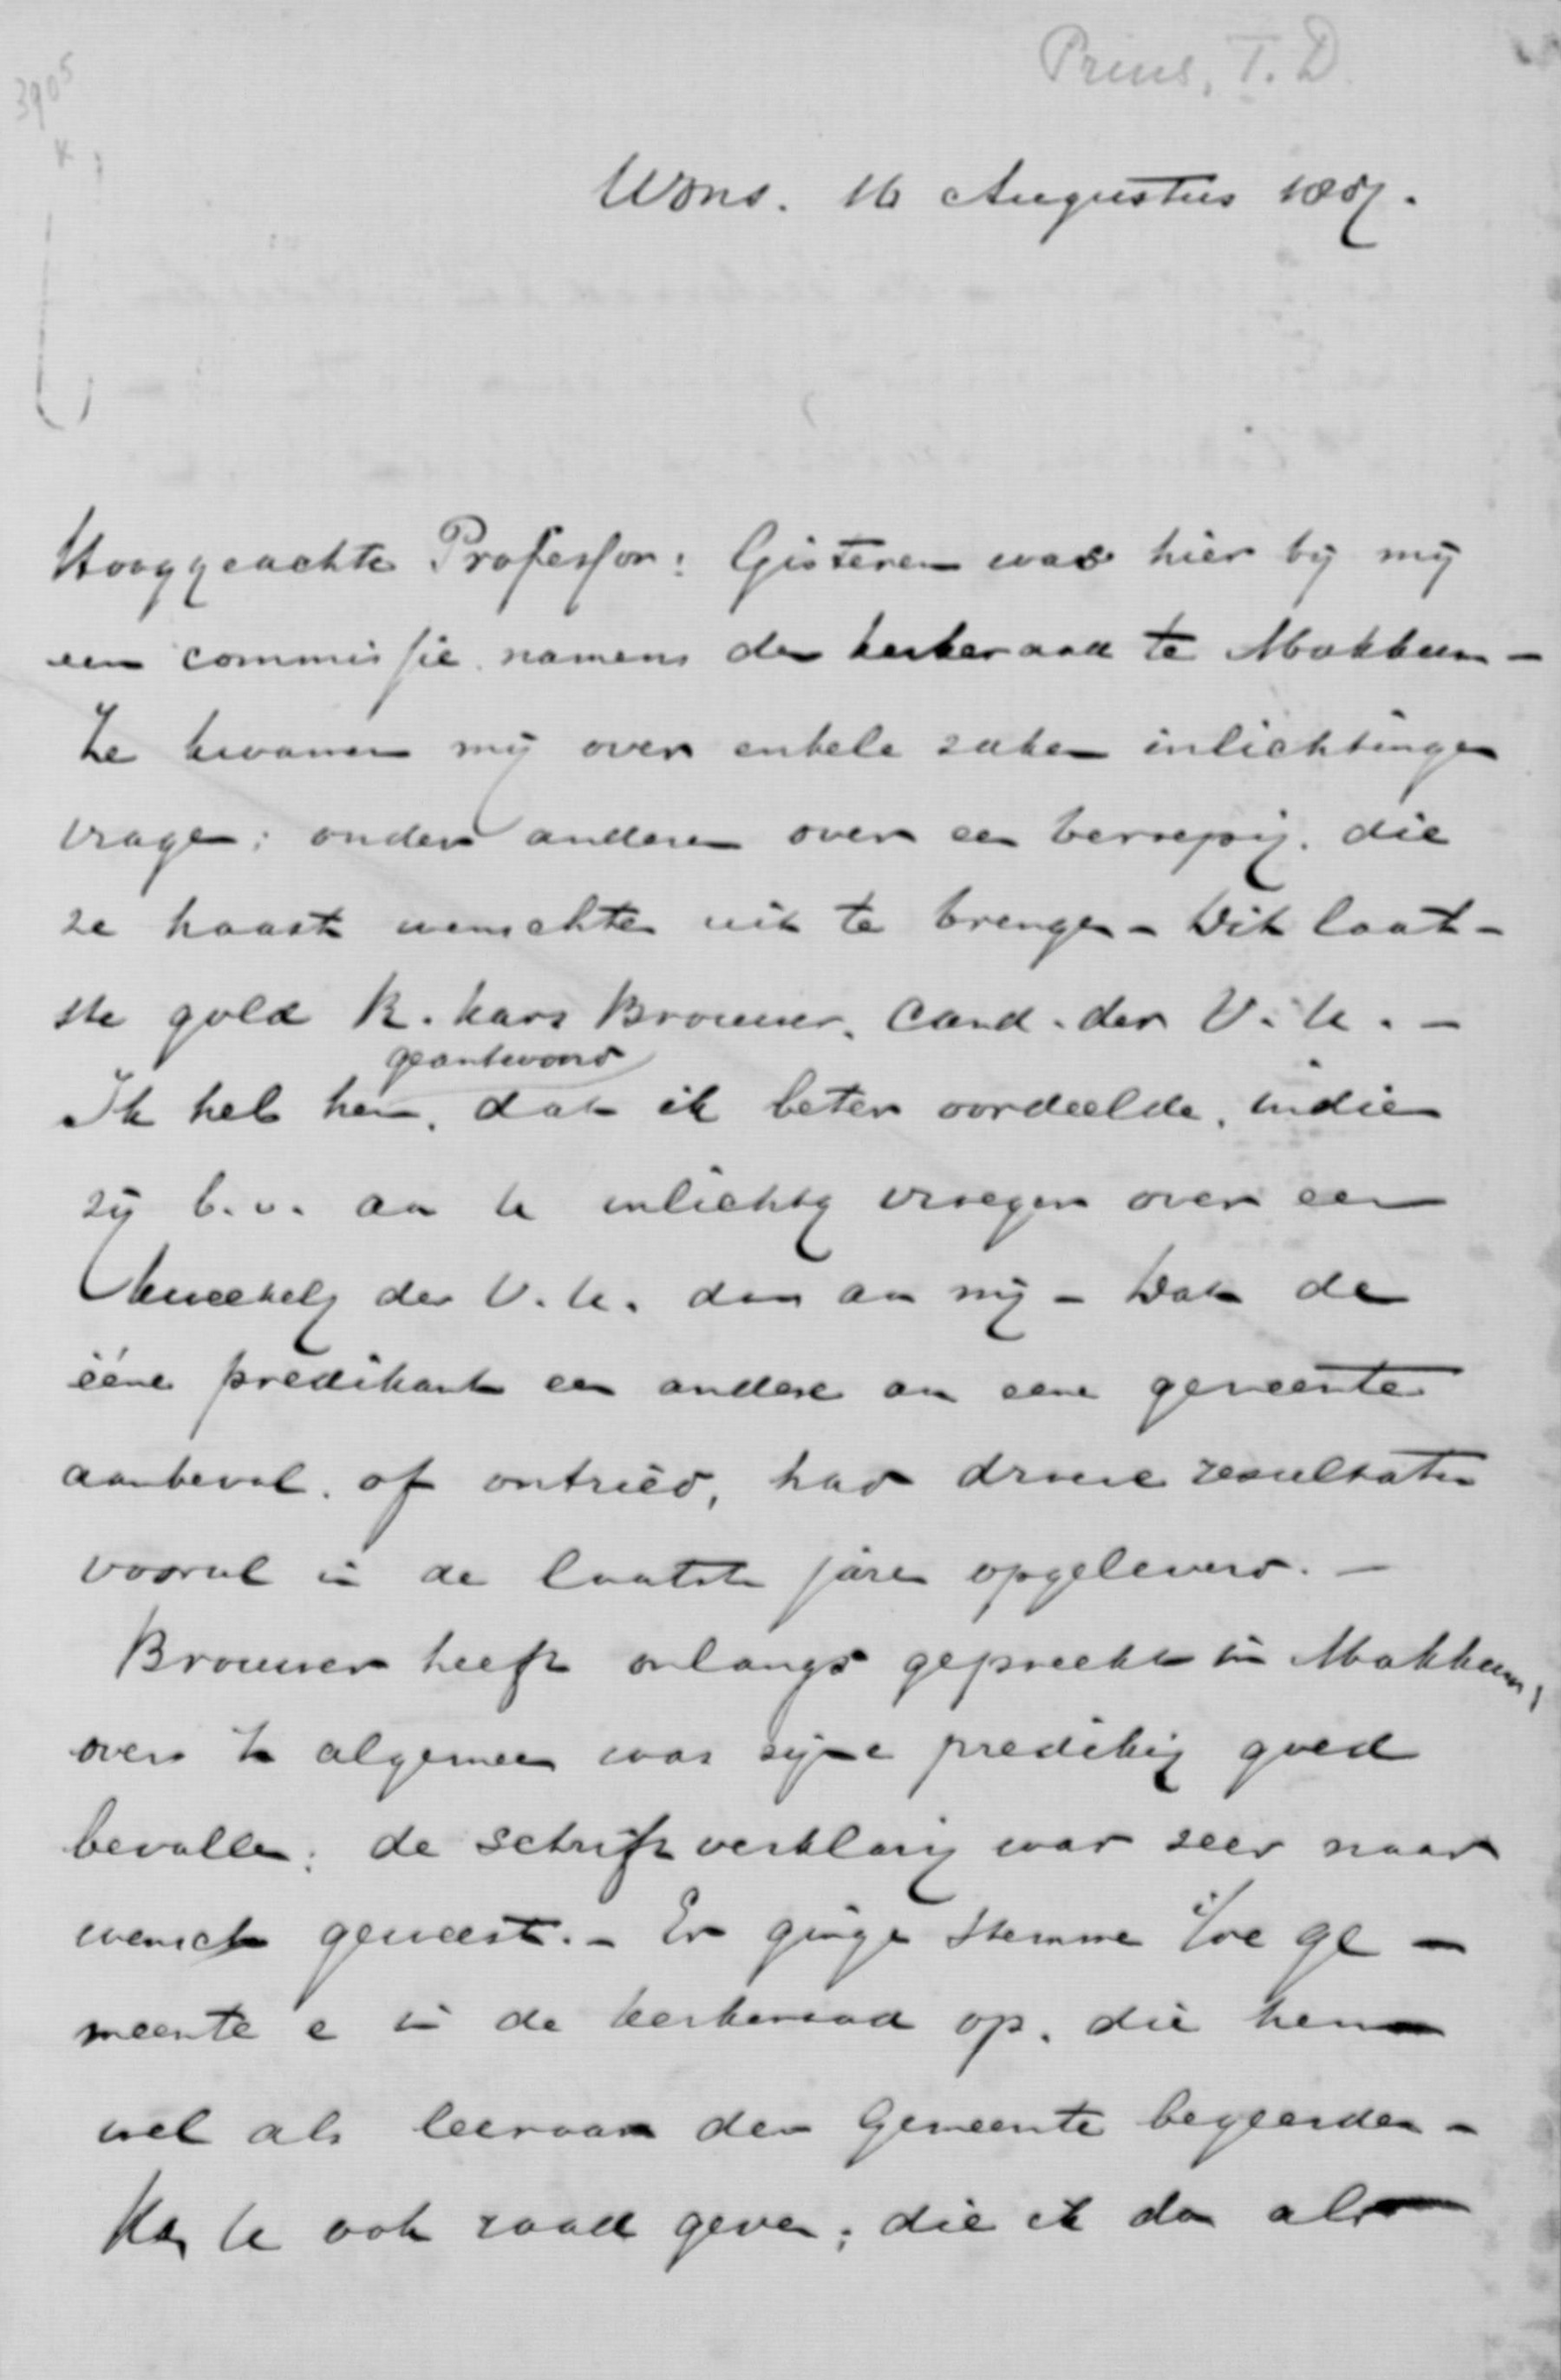 Prins, T. D.
3905
Wons. 16 Augustus 1887.
Hooggeachte Professor: Gisteren was hier bij mij
een commissie namens den kerkeraad te Makkum –
Ze kwamen mij over enkele zaken inlichtingen
vragen; onder anderen over een beroeping, die
ze haast wenschten uit te brengen – Dit laat-
ste gold R. Kars Brouwer, Cand. der V. U. –
geantwoord
Ik heb hen, dat ik beter oordeelde, indien
zij b.v. aan U inlichting vroegen over een
kweekeling der V. U. dan aan mij – Dat de
ééne predikant een andere aan eene gemeente
aanbeval of ontried, had droeve resultaten
vooral in de laatste jaren opgeleverd. –
Brouwer heeft onlangs gepreekt in Makkum,
over 't algemeen was zijne prediking goed
bevallen; de schriftverklaring was zeer naar
wensch geweest. – Er gingen stemmen i/de ge –
meente en in de kerkeraad op, die hem
wel als leeraar der Gemeente begeerden –
Kan U ook raad geven; die ik dan als